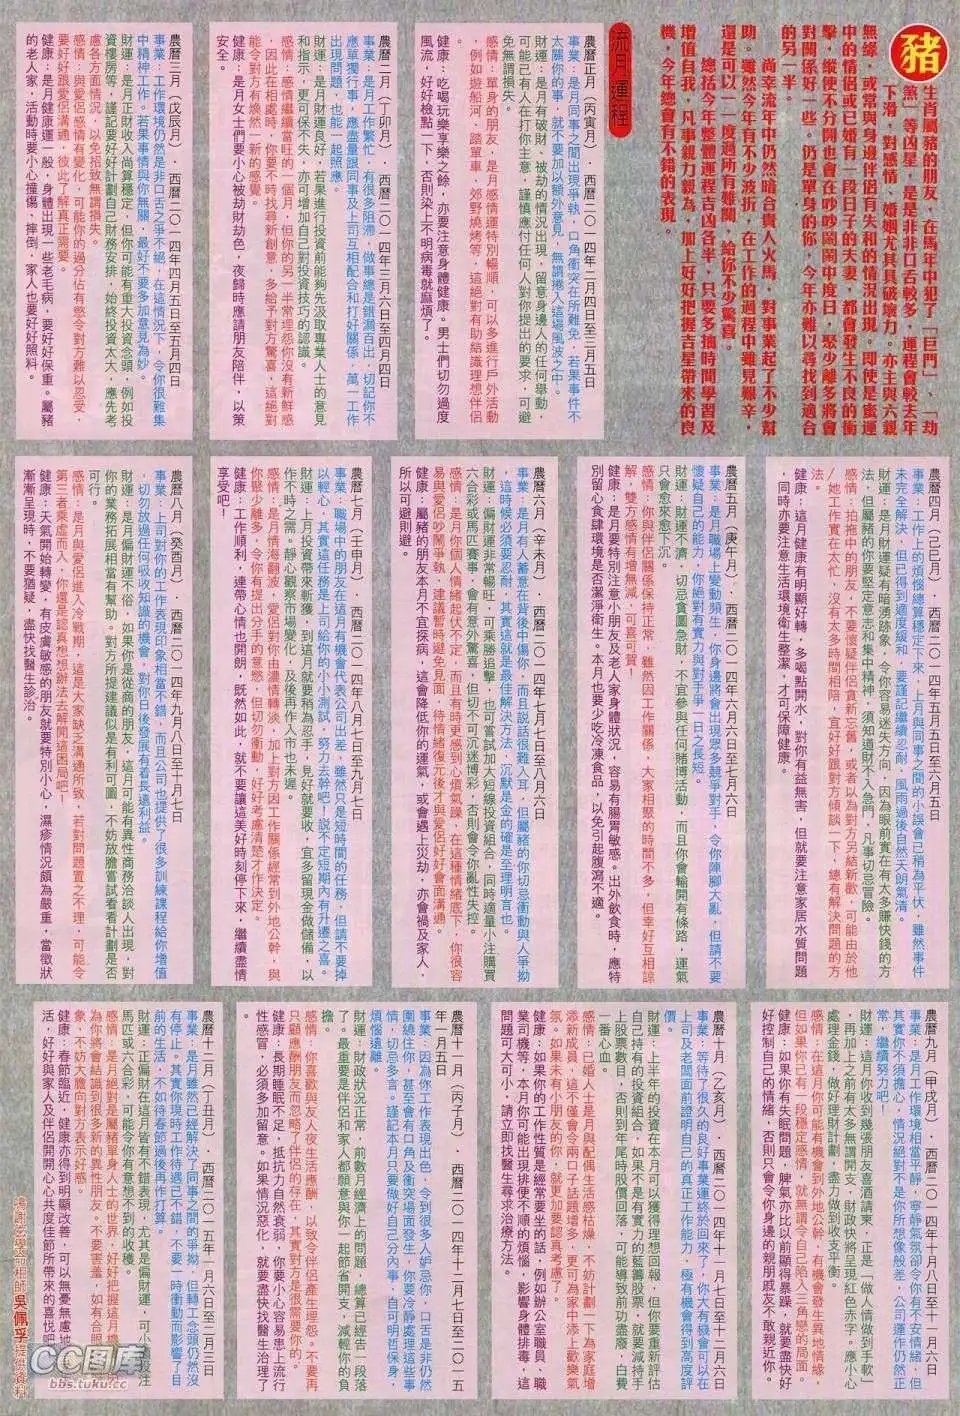 豬
生肖屬豬的朋友，在馬年中犯了「巨門」、「劫
煞」等凶星，是是非非口舌較多，運程會較去年
下滑，對感情、婚姻尤其具破壞力。亦主與六親
無緣，或常與身邊伴侶有失和的情況出現。即使是蜜運
中的情侶或已婚有一段日子的夫妻，都會發生不良的衝
擊，縱使不分開也會在吵吵鬧鬧中度日，聚少離多將會
對關係好一些。仍是單身的你，今年亦難以尋找到適合
的另一半。
尚幸流年中仍然暗合貴人火馬，對事業起了不少幫
助。雖然今年有不少波折，在工作的過程中雖見艱辛，
還是可以一一度過所有難關，給你不少驚喜。
總括今年整體運程吉凶各半，只要多抽時間學習及
增值自我，凡事親力親為，加上好好把握吉星帶來的良
機，今年總會有不錯的表現。
流月運程
農曆正月（丙寅月）．西曆二０一四年二月四日至三月五日
事業：是月同事之間出現爭執，口角衝突在所難免，若果事件不
太關你的事，就不要加以額外意見，無謂捲入這場風波之中。
財運：是月有破財、被劫的情況出現，留意身邊人的任何舉動，
可能有人在打你主意，謹慎應付任何人對你提出的要求，可避
免無謂損失。
感情：單身的朋友，是月感情運特別暢順，可以多進行戶外活動
，例如遊船河、踏單車、郊野燒烤等，這絕對有助結識理想伴侶
健康：吃喝玩樂享樂之餘，亦要注意身體健康。男士們切勿過度
風流，好好檢點一下，否則染上不明病毒就麻煩了。
農曆二月（丁卯月）．西曆二０一四年三月六日至四月四日
事業：是月工作繁忙，有很多阻滯，做事總是錯漏百出，切記你不
應單獨行事，應盡量跟同事及上司互相配合和打好關係，萬一工作
出現問題，也能一起照應。
財運：是月財運良好，若果進行投資前能夠先汲取專業人士的意見
和指示，更可保不失，亦可增加自己對投資技巧的認識。
感情：感情繼續當旺的一個月，但你的另一半常埋怨你沒有新鮮感
，因此在相處時，你要不時找尋新創意，多給予對方驚喜，這絕對
能令對方有煥然一新的感覺。
健康：是月女士們要小心被劫財劫色，夜歸時應請朋友陪伴，以策
安全。
農曆三月（戊辰月）．西曆二０一四年四月五日至五月四日
事業：工作環境仍然是非口舌之爭不絕，在這情況下，令你很難集
中精神工作。若果事情與你無關，最好不要多加意見為妙。
財運：是月正財收入尚算穩定，但你可能有重大投資念頭，例如投
資樓房等，謹記要好好計劃自己財務安排，始終投資太大，應先考
慮各方面情況，以免招致無謂損失。
感情：與愛侶感情有變化，可能你的過分佔有慾令對方難以忍受，
要好好跟愛侶溝通，彼此了解真正需要。
健康：是月健康運一般，身體出現一些老毛病，要好好保重。屬豬
的老人家，活動時要小心撞傷、摔倒，家人也要好好照料。
農曆四月（己巳月）．西曆二０一四年五月五日至六月五日
事業：工作上的煩惱總算穩定下來，上月與同事之間的小誤會已稍為平伏，雖然事件
未完全解決，但已得到適度緩和，要謹記繼續忍耐，風雨過後自然天朗氣清。
財運：是月財運疑有暗湧跡象，令你容易迷失方向，因為眼前實在有太多賺快錢的方
法，但屬豬的你要堅定意志和集中精神，須知道財不入急門，凡事切忌冒險。
感情：拍拖中的朋友，不要懷疑伴侶貪新忘舊，或者以為對方另結新歡，可能由於他
/她工作實在太忙，沒有太多時間相陪，宜好好跟對方傾談一下，總有解決問題的方
法。
健康：這月健康有明顯好轉，多喝點開水，對你有益無害，但就要注意家居水質問題
，同時亦要注意生活環境衛生整潔，才可保障健康。
農曆五月（庚午月）．西曆二０一四年六月六日至七月六日
事業：是月職場上變動頻生，你身邊將會出現眾多競爭對手，令你陣腳大亂，但請不要
懷疑自己的能力，你絕對有實力與對手爭一日之長短。
財運：財運不濟，切忌貪圖急財，不宜參與任何賭博活動，而且你會輸開有條路，運氣
只會愈來愈下沉。
感情：你與伴侶關係保持正常，雖然因工作關係，大家相聚的時間不多，但幸好互相諒
解，雙方感情有增無減，可喜可賀！
健康：是月要特別注意小朋友及老人家身體狀況，容易有腸胃敏感。出外飲食時，應特
別留心食肆環境是否潔淨衛生。本月也要少吃冷凍食品，以免引起腹瀉不適。
農曆六月（辛未月）．西曆二０一四年七月七日至八月六日
事業：是月有人蓄意在背後中傷你，而且說話很難入耳，但屬豬的你切忌衝動與人爭拗
，這時候必須要忍耐，其實這就是最佳解決方法，沉默是金的確是至理明言也。
財運：偏財運非常暢旺，可乘勝追擊，也可嘗試加大短線投資組合，同時適量小注購買
六合彩或馬匹賽事，會有意外驚喜，但切不可沉迷博彩，否則會令你亂性失控。
感情：是月你個人情緒起伏不定，而且有時更感到心煩氣躁，在這種情緒底下，你很容
易與愛侶吵鬧爭執，建議暫時避免見面，待情緒復元後才與愛侶好好會面溝通。
健康：屬豬的朋友本月不宜探病，這會降低你的運氣，或會遇上災劫，亦會禍及家人，
所以可避則避。
農曆七月（壬申月）．西曆二０一四年八月七日至九月七日
事業：職場中的朋友在這月有機會代表公司出差，雖然只是短時間的任務，但請不要掉
以輕心，其實這任務是上司給你的小小測試，努力去幹吧！說不定短期內有升遷之喜。
財運：上月投資帶來斬獲，到這月就要稍為忍手，見好就要收，宜多留現金做儲備，以
作不時之需。靜心觀察市場變化，及後再作入市也未遲。
感情：是月情海翻波，愛侶對你由濃情轉淡，加上對方因工作關係經常到外地公幹，與
你聚少離多，令你有提出分手的意慾，但切勿衝動，好好考慮清楚才作決定。
健康：工作順利，連帶心情也開朗，既然如此，就不要讓這美好時刻停下來，繼續盡情
享受吧！
農曆八月（癸酉月）．西曆二０一四年九月八日至十月七日
事業：上司對你的工作表現印象相當不錯，而且公司也提供了很多訓練課程給你增值
，切勿放過任何吸收知識的機會，對你日後發展有着長遠利益。
財運：是月偏財運不俗，如果你是從商的朋友，這月可能有異性商務洽談人出現，對
你的業務拓展相當有幫助。對方所提建議似是有利可圖，不妨放膽嘗試看看計劃是否
可行。
感情：是月與愛侶進入冷戰期，這是大家缺乏溝通所致，若對問題置之不理，可能令
第三者乘虛而入，你還是認真想想辦法去解開這困局吧！
健康：天氣開始轉變，有皮膚敏感的朋友就要特別小心，濕疹情況頗為嚴重，當徵狀
漸漸呈現時，不要猶疑，盡快找醫生診治。
農曆九月（甲戌月）．西曆二０一四年十月八日至十一月六日
事業：是月工作環境相當平靜，寧靜氣氛卻令你有不安情緒，但
其實你不須擔心，情況絕對不是你所想像般差，公司運作仍然正
常，繼續努力吧！
財運：這月你收到幾張朋友喜酒請柬，正是「做人情做到手軟」
，再加上之前有太多無謂開支，財政快將呈現紅色赤字。應小心
處理金錢，做好理財計劃，盡力做到收支平衡。
感情：在這月你可能有機會到外地公幹，有機會發生異地情緣，
但如果你已有一段穩定感情，就無謂令自己陷入三角戀的局面。
健康：如果你有失眠問題，脾氣亦比以前顯得暴躁，就要盡快好
好控制自己的情緒，否則只會令你身邊的親朋戚友不敢親近你。
農曆十月（乙亥月）．西曆二０一四年十一月七日至十二月六日
事業：等待了很久的良好事業運終於回來了，你大有機會可以在
上司及老闆面前證明自己的真正工作能力，極有機會得到高度評
價。
財運：上半年的投資在本月可以獲得理想回報，但你要重新評估
自己持有的投資組合，若果不是有實力的藍籌股票，就要減持手
上股票數目，否則到年尾時股價回落，可能導致前功盡廢，白費
一番心血。
感情：已婚人士是月與配偶生活感枯燥，不妨計劃一下為家庭增
添新成員，這不僅會令兩口子話題增多，更可為家中添上歡樂氣
氛。如果未有小朋友的你，就更加要認真考慮了。
健康：如果你的工作性質是經常要坐的話，例如辦公室職員、職
業司機等，本月你可能出現排便不順的煩惱，影響身體排毒，這
問題可大可小，請立即找醫生尋求治療方法。
農曆十一月（丙子月）．西曆二０一四年十二月七日至二０一五
年一月五日
事業：因為你工作表現出色，令到很多人妒忌你，口舌是非仍然
圍繞住你，甚至會有口角及衝突場面發生，你要冷靜處理這些事
情，切忌多言。謹記本月只要做好自己分內事，自可明哲保身，
煩惱遠離。
財運：財政狀況正常，前數月經濟上的問題，總算已經告一段落
了。最重要是伴侶和家人都願意與你一起節省開支，減輕你的負
擔。
感情：你喜歡與友人夜夜生活應酬，以致令伴侶產生埋怨。不要再
只顧應酬朋友而忽略了伴侶的存在，其實對方是很需要你的。
健康：長期睡眠不足，抵抗力自然衰弱，你要小心容易患上流行
性感冒，必須多加留意。如果情況惡化，就要盡快找醫生治理了
農曆十二月（丁丑月）．西曆二０一五年一月六日至二月三日
事業：是月雖然已經解決了同事之間的爭拗，但轉工念頭仍然沒
有停止。其實你現時工作待遇已不錯，不要一時衝動而影響了目
前的生活，不如待春節過後再作打算。
財運：正偏財在這月皆有不錯表現，尤其是偏財運，可小
馬匹或六合彩，可能令你有意想不到的收穫。
感情：是月絕對是屬豬單身人士的世界，好好把握這月
為你將會結識到很多新的異性朋友。不要害羞，如有合眼
象，不妨大膽向對方表示好感。
健康：春節臨近，健康亦得到明顯改善，可以無憂無慮地
活，好好與家人及伴侶開開心心共度佳節所帶來的喜悅吧
鳴謝玄學命相師吳佩孚提供資料
CC图库
bbs.tuku.cc